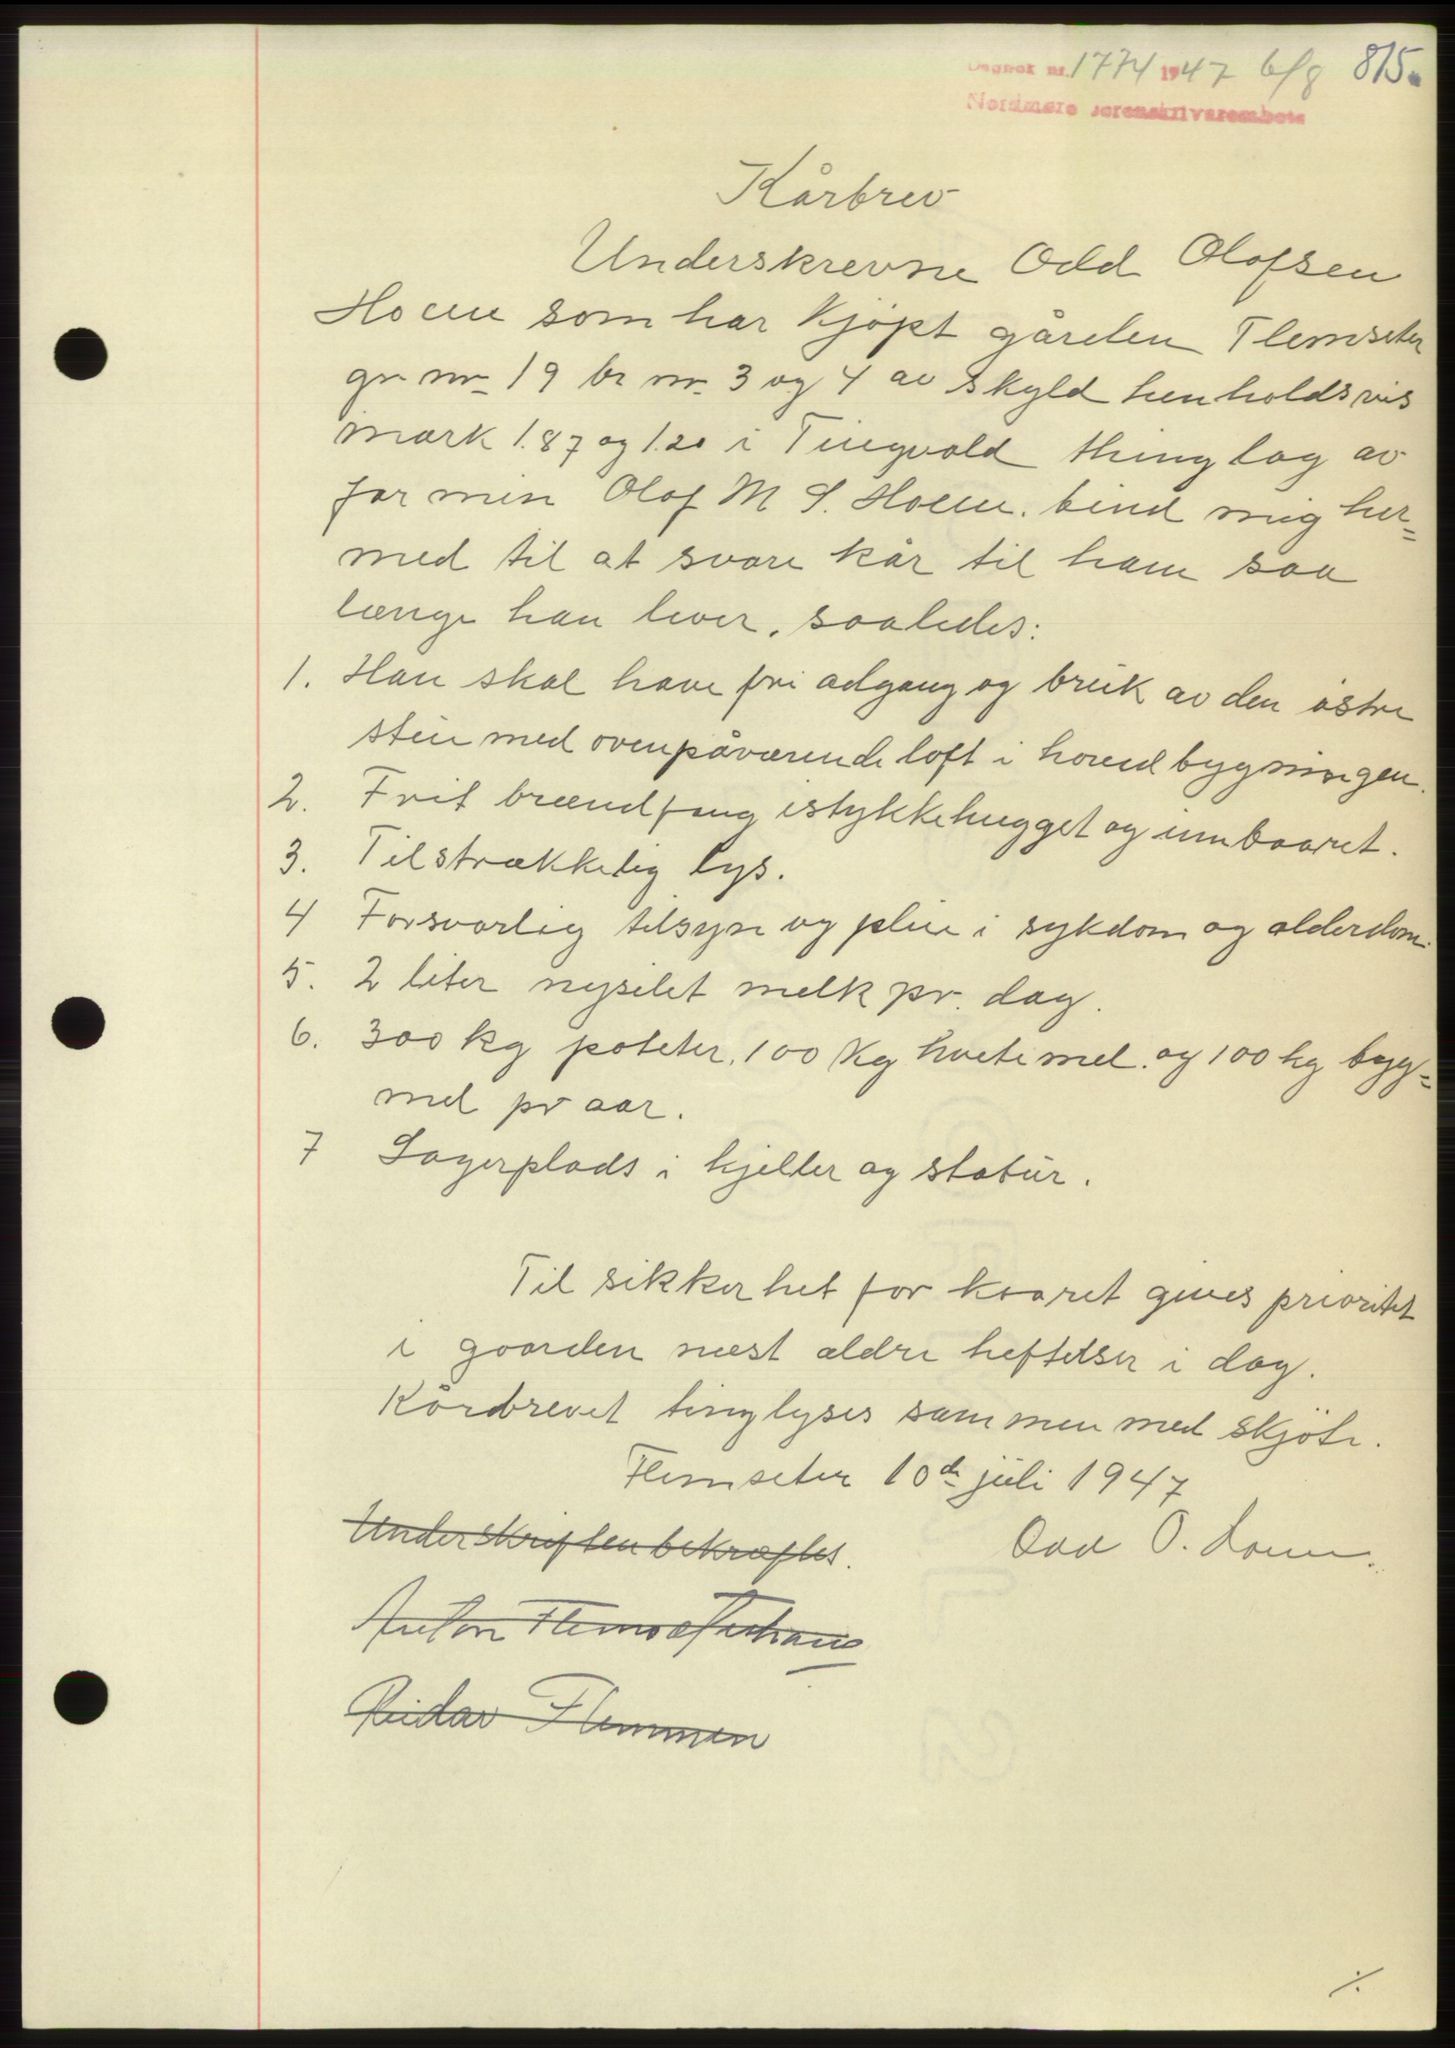 Dagbok nr. 1774 1947 6/8 815.
Nordmøre sorenskrivarembete
Kårbrev
Underskrevne Odd Olofsen
Hoem som har kjøpt gården Flemseter
gr nr 19 br nr. 3 og 4 av skyld henholdsvis
mark 1.87 og 1.20 i Tingvold thinglag av
far min Olof M S. Hoem. bind mig her=
med til at svare kår til ham saa
længe han lever, saaledes:
1. Han skal have fri adgang og bruk av den østre
stue med ovenpåværende loft i hovedbygningen.
2. Frit brændfang istykkehugget og innbaaret.
3. Tilstrækkelig lys.
4 Forsvarlig tilsyn og pleie i sykdom og alderdom.
5. 2 liter nysilet melk pr. dag.
6. 300 kg poteter, 100 kg hvetemel. og 100 kg byg=
mel pr aar.
7 Lagerplads i kjeller og stabur.
Til sikkerhet for kaaret gives prioritet
i gaarden næst ældre heftelser i dag.
Kårbrevet tinglyses sammen med skjøte.
Flemseter 10de juli 1947
Underskriften bekræftes.
Odd O. Hoem.
Anton Flemsæterhaug
Reidar Flemmen
./.